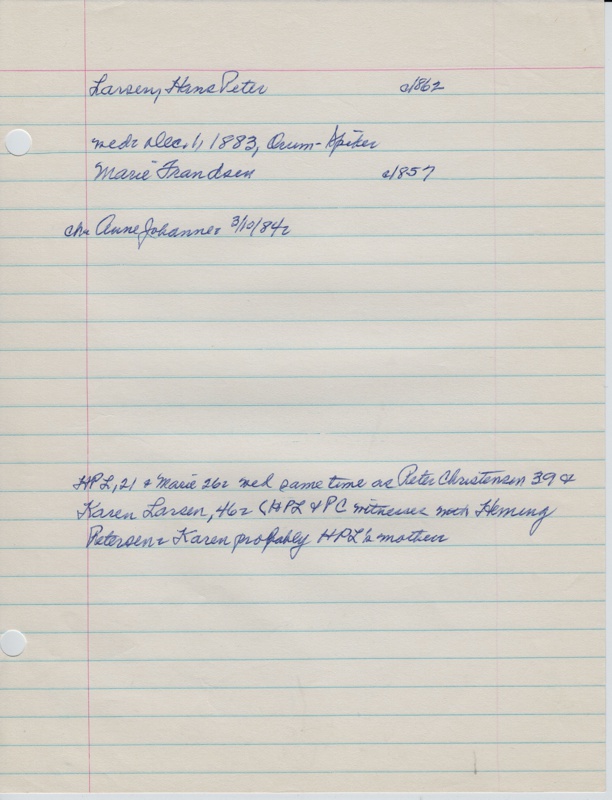 Larsen, Hans Peter c1862
wed: Dec. 1, 1883, Orum-
Marie Frandsen c1857
ch: Anne Johanne: 3/10/84:
HPL, 21 & Marie 26: wed same time as Peter Christensen 39 &
Karen Larsen, 46: (HPL & PC witnesses with Heming
Petersen: Karen probably HPL's mother